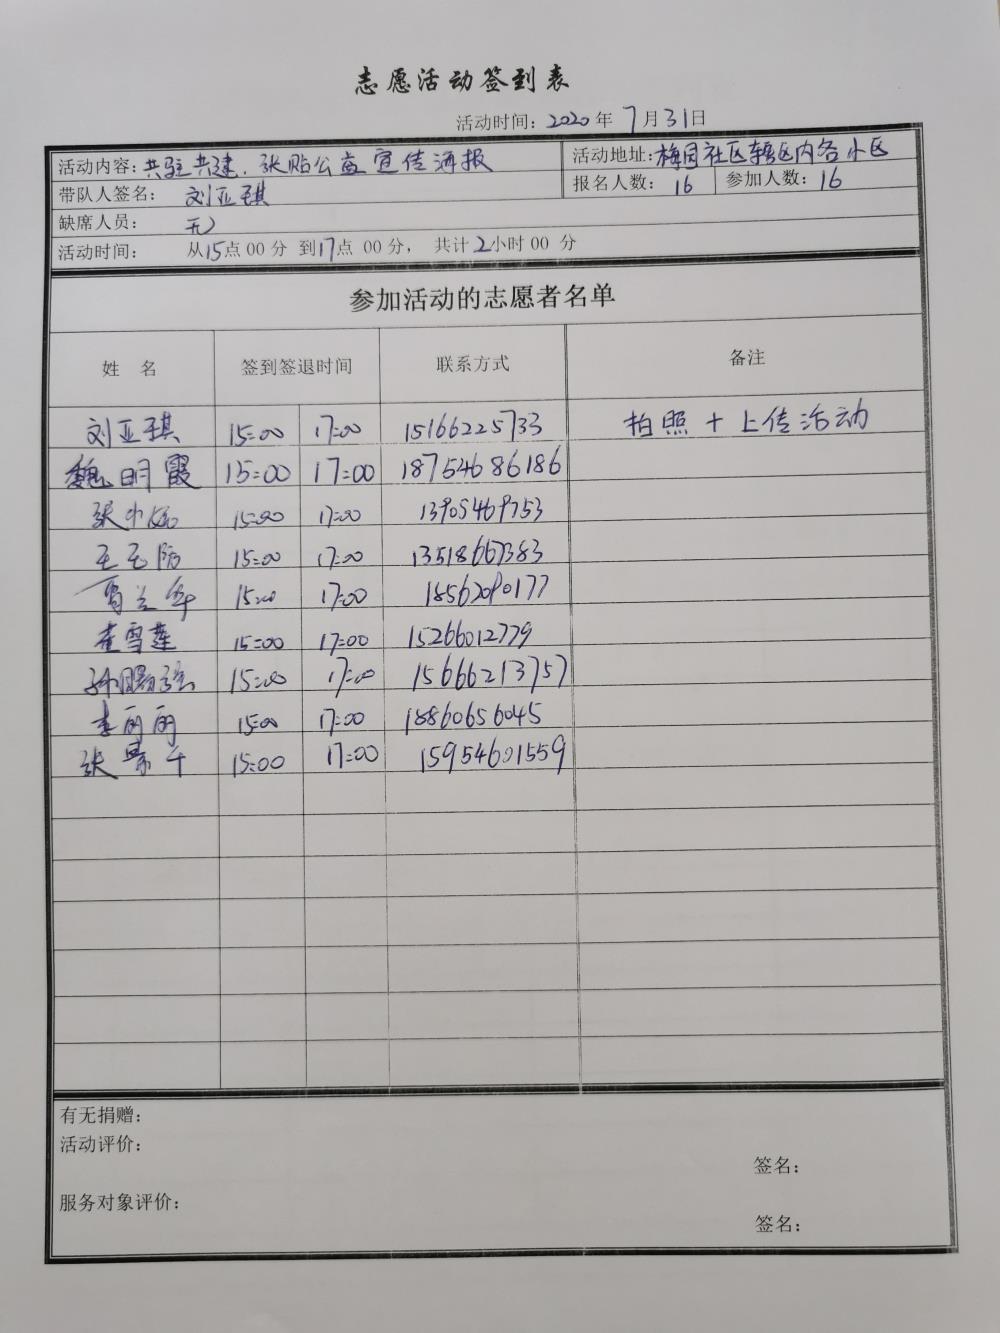 志愿活动签到表
活动时间：2020年 7月31日
活动内容：共驻共建，张贴公益宣传海报 活动地址：梅园社区辖区内各小区
带队人签名： 刘亚琪 报名人数： 16 参加人数：16
缺席人员： 无
活动时间： 从15点00分 到17点 00分， 共计2小时00 分
参加活动的志愿者名单
姓 名 签到签退时间 联系方式 备注
刘亚琪 15:00 17:00 15166225733 拍照+上传活动
魏明霞 15:00 17:00 18754686186
张 15:00 17:00
王玉 15:00 17:00 13518667383
15:00 17:00
崔雪莲 15:00 17:00 15266012779
孙 15:00 17:00 15666213757
李丽丽 15:00 17:00 18860656045
张 15:00 17:00 15954601559
有无捐赠：
活动评价：
签名：
服务对象评价：
签名：